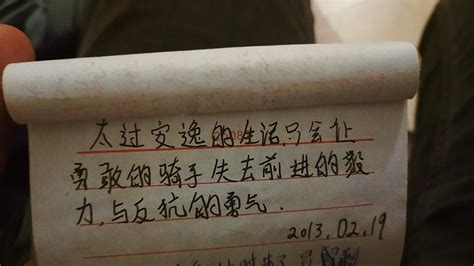 太过安逸的生活,只会让
勇敢的骑手失去前进的毅
力,与反抗的勇气.
2013.02.19